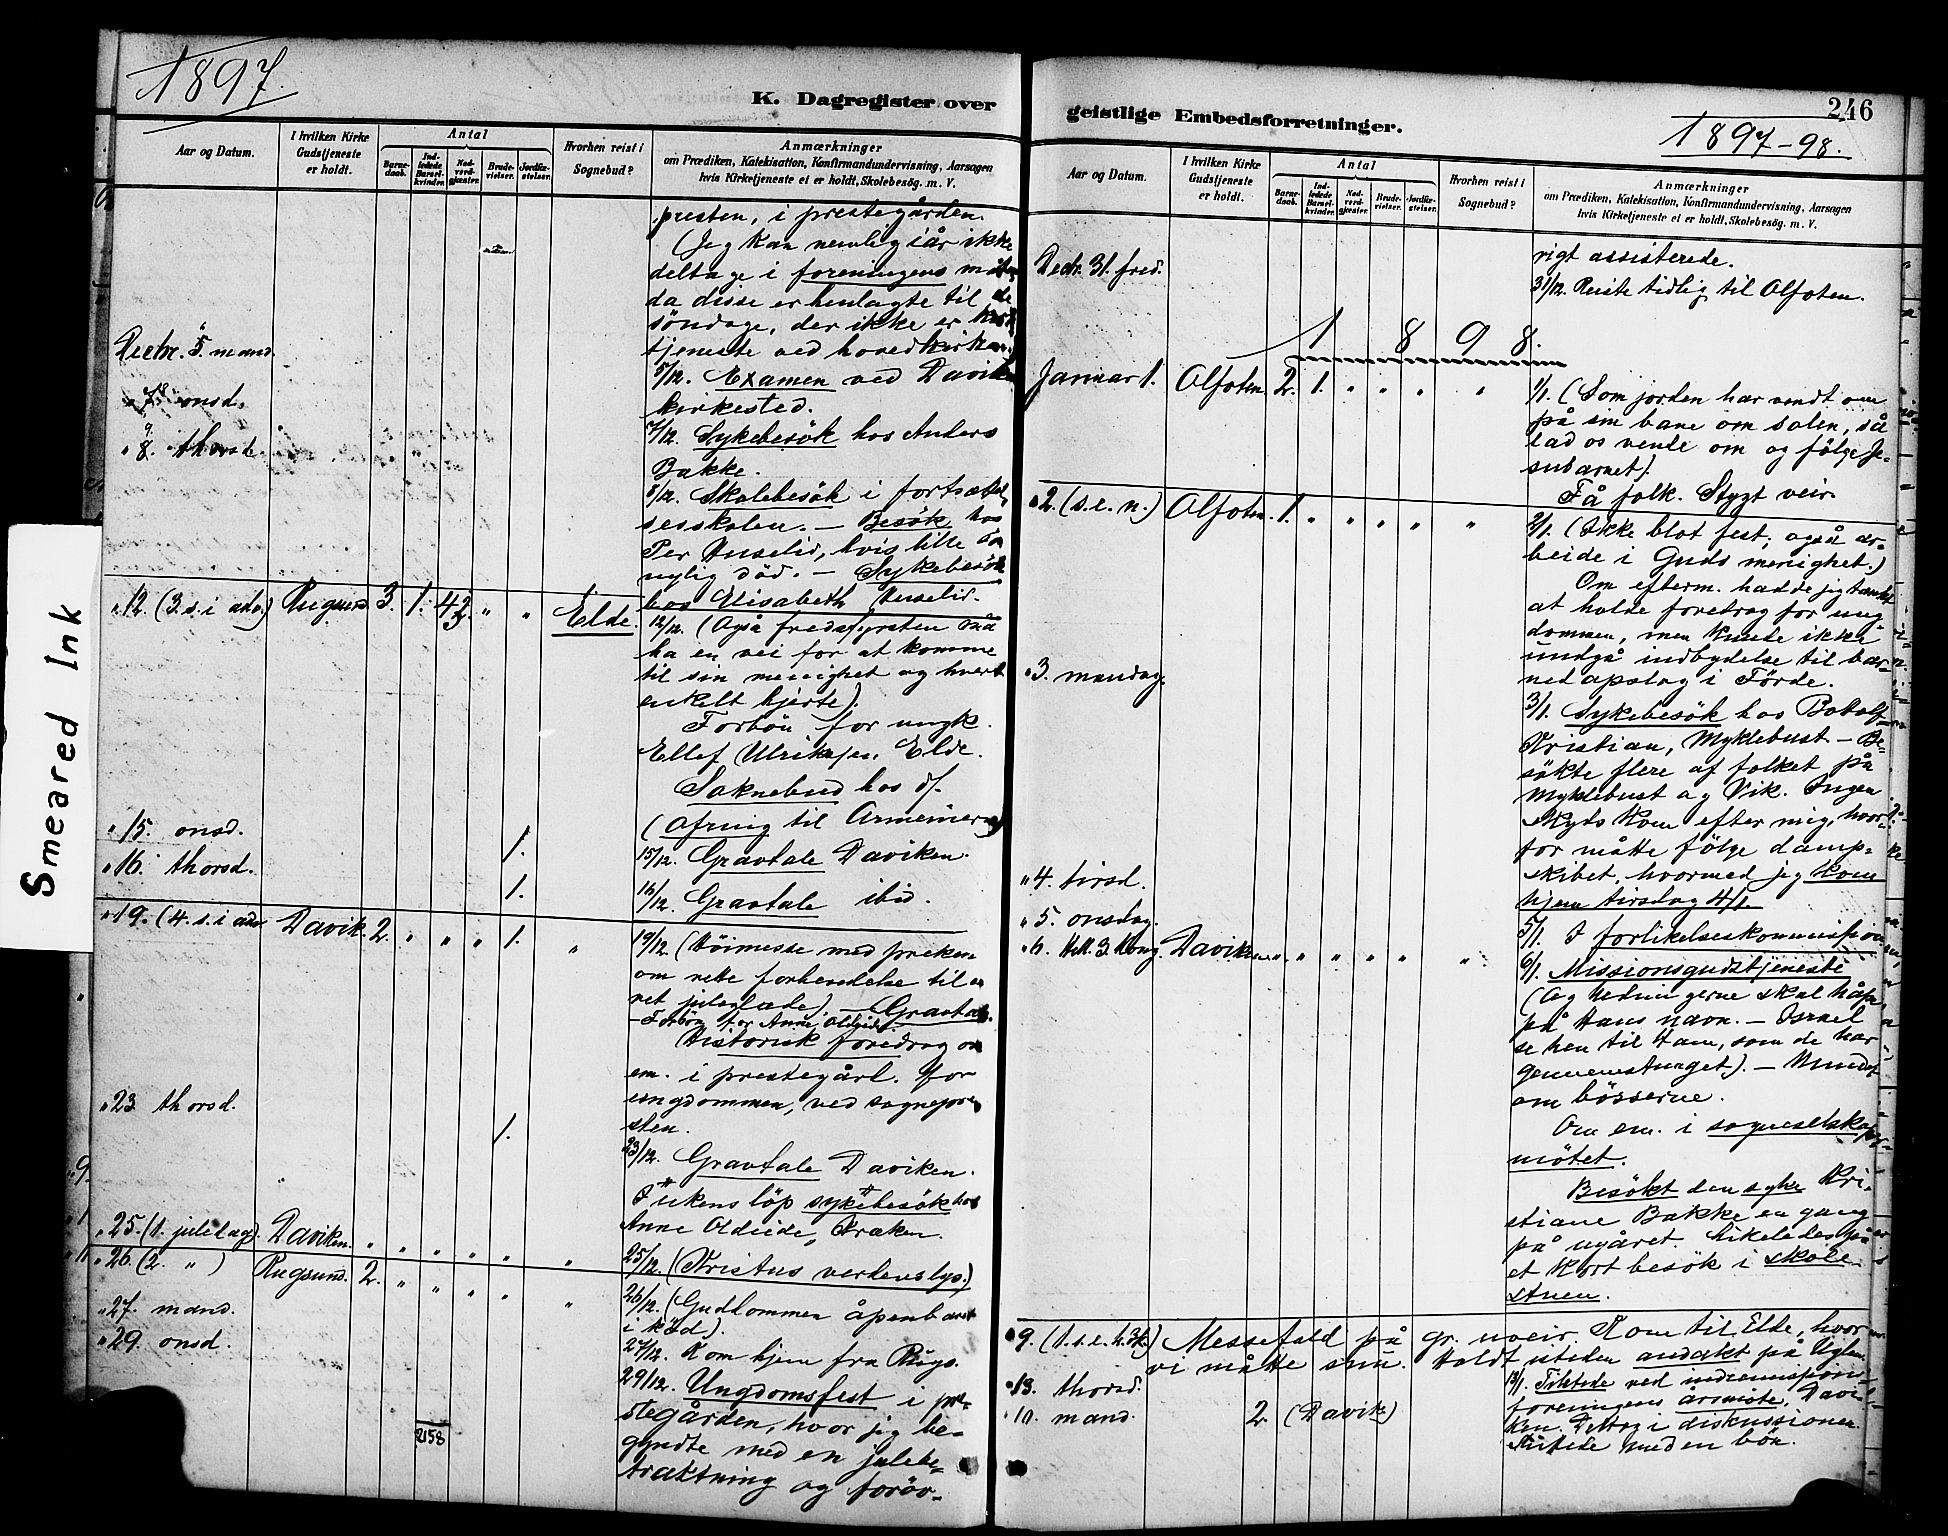 1897.
K. Dagregister over
Aar og Datum.
I hvilken Kirke Gudstjeneste er holdt.
Antal
Barnedaab.
Indledede Barselkvinder.
Nadverdgjæster.
Brudevielser.
Jordfæstelser.
Hvorhen reist i Sognebud?
Anmærkninger
om Prædiken, Katekisation, Konfirmandundervisning, Aarsagen
hvis Kirketjeneste ei er holdt, Skolebesög. m. V.
presten, i prestegården.
(Jeg kan nemlig iår ikke
deltage i foreningens
da disse er henlagte til de
söndage, der ikke er
tjeneste ved hovedkirken.)
Decbr. 5. mand.
5/12. Examen ved Daviken
kirkested.
" 7. onsd.
7/12. Sykebesök hos Anders
Bakke.
" 8. thorsd.
8/12. Skolebesök i fortsættel-
sesskolen. – Besök hos
Per Huselid, hvis lille
nylig död. – Sykebesök
hos Elisabeth Huselid.
" 12. (3. s. i adv.) Rugsund. 3. 1. 42 " " Elde.
12/12. (Også fredsfyrsten må
ha en vei for at komme
til sin menighet og hvert
enkelt hjerte).
Forbön for ungk.
Ellef Ulriksen Elde.
Soknebud hos d/.
(Ofring til Armenierne)
" 15. onsd. 1.
15/12. Gravtale Daviken.
" 16. thorsd. 1.
16/12. Gravtale ibid.
" 19. (4. s. i adv. Davik. 2. " " " 1. "
19/12 (Höimesse med preken
om rette forberedelse til
ret juleglæde). – Gravtale.
– Forbön for Anne Oldeide.
Historisk foredrag om
em. i prestegårl. for
ungdommen, ved sognepre-
sten.
" 23. thorsd. 1.
23/12. Gravtale Daviken.
I ukens löp sykebesök hos
Anne Oldeide,
" 25. (1. juledag). Daviken. " " " " " "
25/12. (Kristus verdens lys.)
" 26. (2. " ) Rugsund. 2. " " " " "
26/12. (Guddommen åpenbaret
i kjöd).
" 27. mand.
27/12. Kom hjem fra Rugs.
" 29. onsd.
29/12. Ungdomsfest i pre-
stegården, hvor jeg be-
gyndte med en julebe-
traktning og foröv-
2158
Smeared Ink
geistlige Embedsforretninger.
246
1897-98.
Aar og Datum.
I hvilken Kirke Gudstjeneste er holdt.
Antal
Barnedaab.
Indledede Barselkvinder.
Nadverdgjæster.
Brudevielser.
Jordfæstelser.
Hvorhen reist i Sognebud?
Anmærkninger
om Prædiken, Katekisation, Konfirmandundervisning, Aarsagen
hvis Kirketjeneste ei er holdt, Skolebesög. m. V.
rigt assisterede.
Decbr. 31. fred.
31/12. Reiste tidlig til Ålfoten.
1 8 9 8.
Januar 1. Ålfoten. 2. 1. " " " "
1/1. (Som jorden har vendt om
på sin bane om solen, så
lad os vende om og fölge Je-
subarnet).
Få folk. Stygt veir.
" 2. (s. e. n.) Ålfoten. 1. " " " " "
2/1. (Ikke blot fest, også ar-
beide i Guds menighet.)
Om efterm. hadde jeg tænkt
at holde foredrag for ung
dommen, men kunde ikke
undgå indbydelse til bar-
nedåpslag i Förde.
" 3. mandag.
3/1. Sykebesök hos Botolf
Kristian, Myklebust. – Be-
sökte flere af folket på
Myklebust og Vik. Ingen
skyds kom efter mig, hvor-
for måtte fölge damp-
skibet, hvormed jeg kom
hjem tirsdag 4/1.
" 4. tirsd.
" 5. onsdag.
5/1. I forlikelseskommission.
" 6. Hell. 3 kong. Daviken " " " " " "
6/1. Missionsgudstjeneste
(Og hedningerne skal håpe
på Hans navn. – Israel
se hen til ham, som de har
gjennemstunget). – Mindet
om bösserne.
Om em. i sogneselskaps-
mötet.
Besökt den syke Kri-
stiane Bakke en gang
på nyåret. Likeledes på
et kort besök i skole-
stuen.
" 9. (1. s. e. h. 3 k.) Messefald på gr. uveir. Kom til Elde, hvor
vi måtte snu. Holdt isteden andakt på
" 13. thorsd.
13/1. Tilstede ved indremissions-
foreningens årsmöte, Davi-
ken. Deltog i diskussionen.
Sluttede med en bön.
" 10. mand. 2 (Davik)